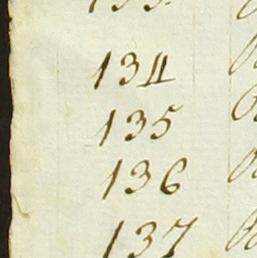 134
135
136
137